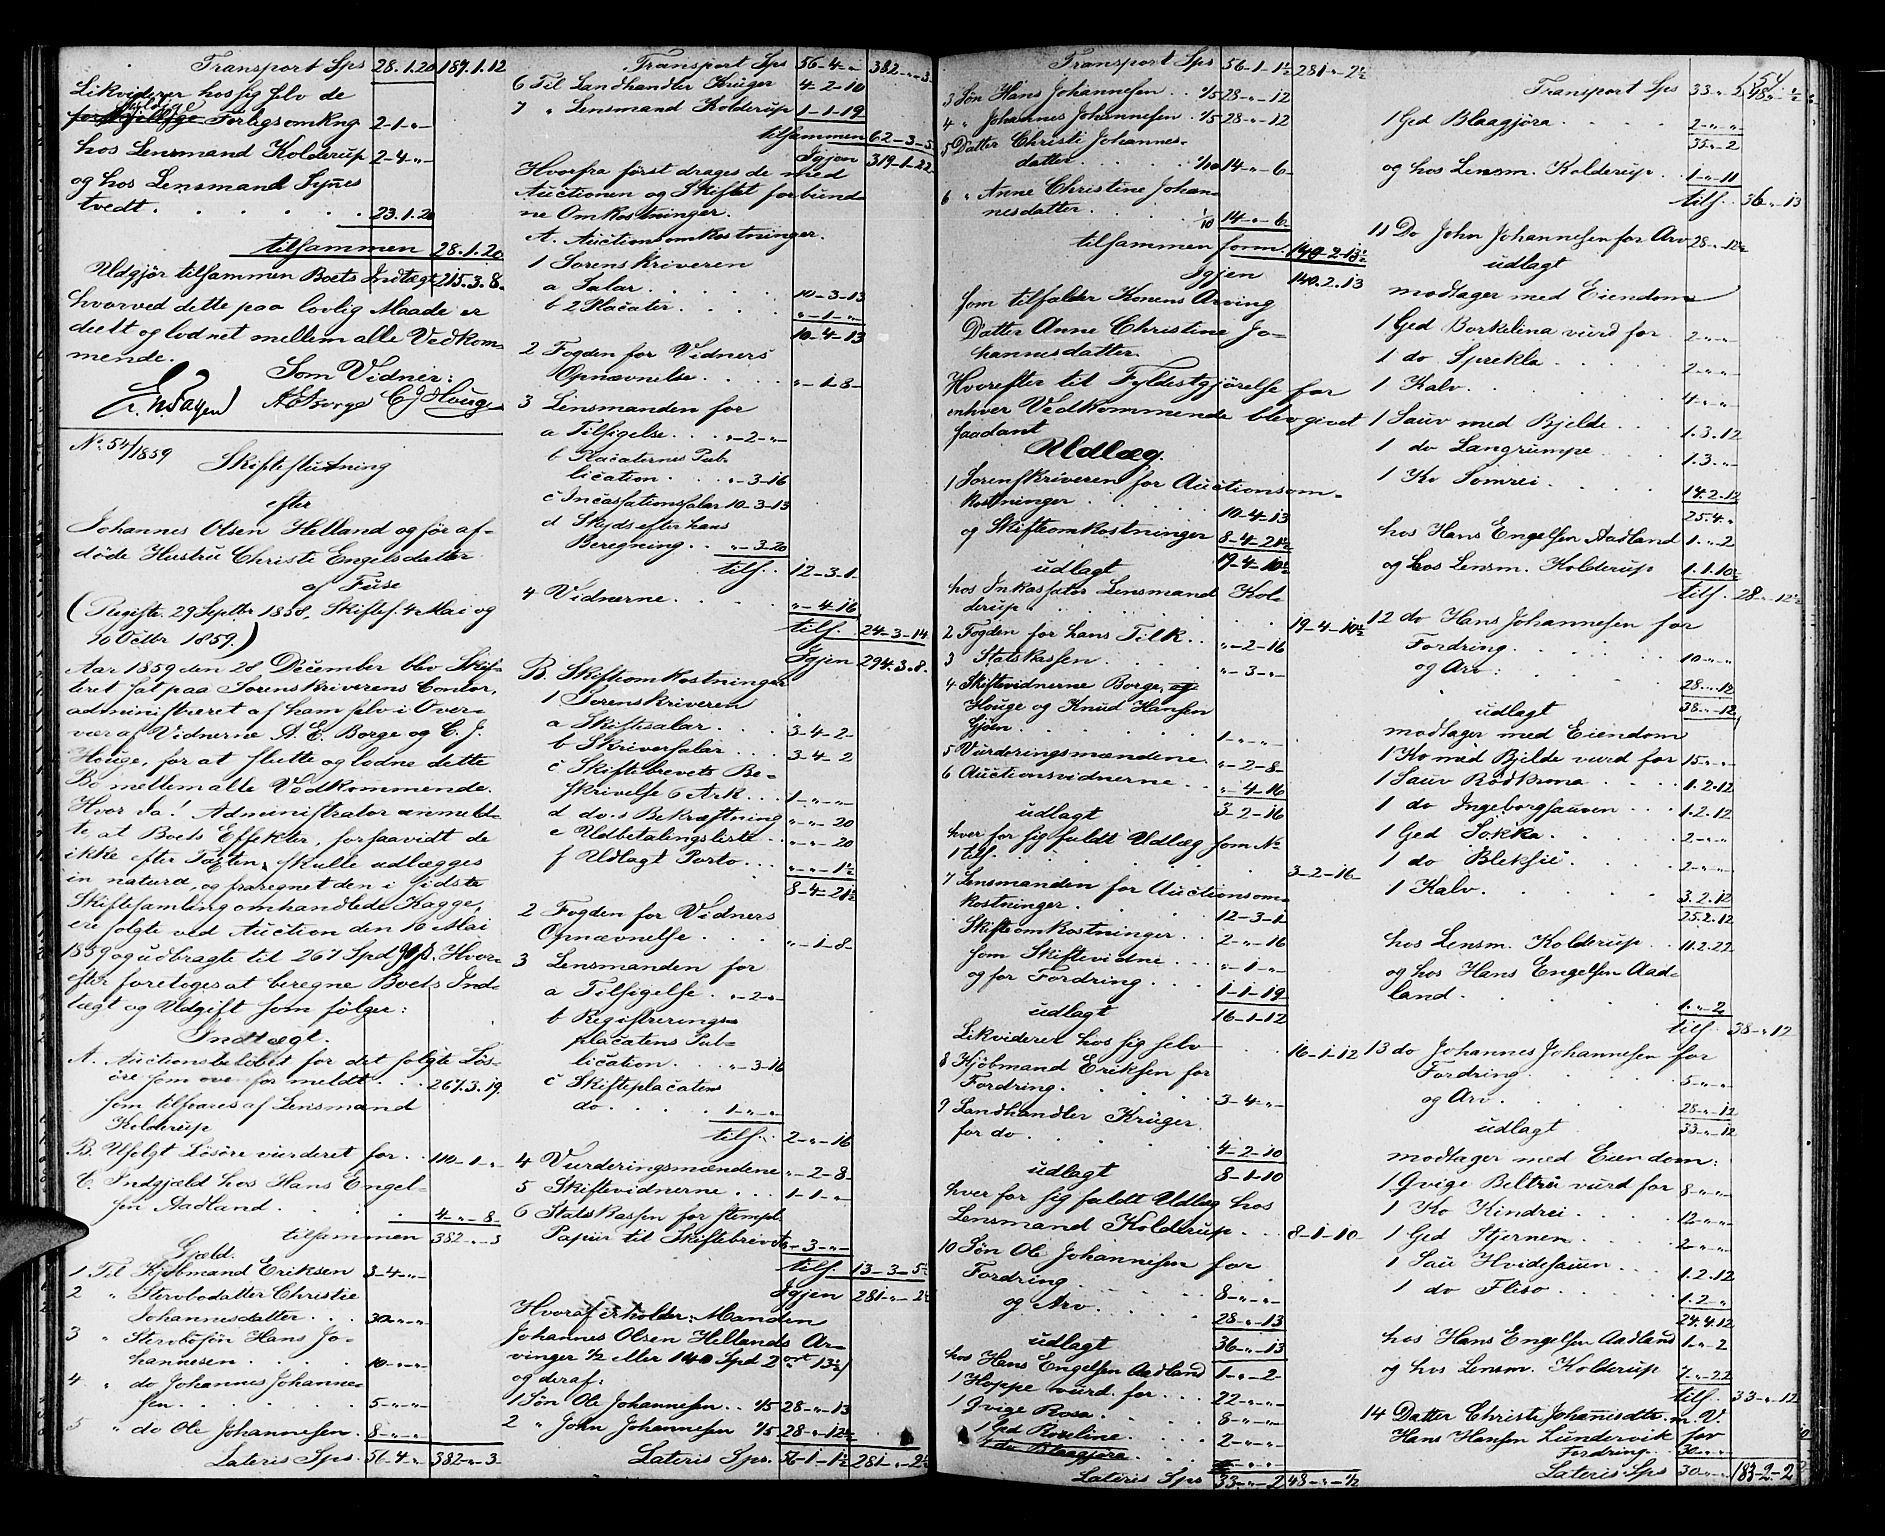 Transport Sps 28.1.20 187.1.12
Likviderer hos sig selv de
skyldige
Forlagsomkng 2-1-"-
hos Lensmand Kolderup 2-4-"-
og hos Lensmand Synes
tvedt. 23.1.20
tilsammen 28.1.20
Udgjør tilsammen Boets Indtægt 215.3.8.
hvorved dette paa lovlig Maade er
deelt og lodnet mellem alle Vedkom-
mende.
Som Vidner:
A E Borge C J Houge
No 54/1859
Skifteslutning
efter
Johannes Olsen Helland og før af-
døde Hustru Christi Engelsdatter
af Fuse
(Registr. 29 Septbr 1858, Skiftes. 4 Mai og
10 Octbr 1859.)
Aar 1859 den 28 December blev Skif-
teret sat paa Sorenskriverens Contor,
administreret af ham selv i Over-
vær af Vidnerne A. E. Borge og C. J.
Houge, for at slutte og lodne dette
Bo mellem alle Vedkommende.
Hvor da! Administrator anmeld-
te at Boets Effekter, forsaavidt de
ikke efter Taxten skulle udlægges
in natura, og fraregnet den i sidste
Skiftesamling omhandlede Kagge,
ere solgte ved Auction den 16 Mai
1859 og udbragte til 267 Spd Hvor-
efter foretoges at beregne Boets Ind-
tægt og Udgift som følger:
Indtægt.
A. Auctionsbeløbet for det solgte Løs-
øre som ovenfor meldt. 267.3.19.
som tilsvares af Lensmand
Kolderup
B. Usolgt Løsøre vurderet for 110-1-"-
C. Indgjæld hos Hans Engel-
sen Aadland. 4-"-8
tilsammen 382-"-3
Gjæld.
1 Til Kjøbmand Eriksen 3-4-"-
2 " Stervbodatter Christie
Johannesdatter. 30-"-"-
3 " Stervbosøn Hans Jo-
hannesen. 10-"-"-
4 " do Johannes Johanne-
sen. 5-"-"-
5 " do Ole Johannesen. 8-"-"-
Lateris Sps. 56-4-" 382-"-3
Transport Sps 56-4-" 382-"-3
6 Til Landhandler Krüger 4-2-10
7 " Lensmand Kolderup 1-1-19
tilsammen 62-3-5
Igjen 319-1-22
Hvorfra først drages de med
Auctionen og Skiftet forbund-
ne Omkostninger.
A. Auctionsomkostninger.
1 Sorenskriveren
a Salar. 10-3-13
b 2 Placater. "-1-"-
10-4-13
2 Fogden for Vidners
Opnævnelse. "-1-8-
3 Lensmanden for
a Tilsigelse. "-2-"-
b Placaternes Pub-
lication. "-3-16
c Incassationssalar 10-3-13
d Skyds efter hans
Beregning. "-3-20
tils. 12-3-1
4 Vidnerne. "-4-16
tils. 24-3-14
Igjen 294.3.8.
B. Skifteomkostninger
1 Sorenskriveren
a Skiftesalar. 3-4-2-
b Skriversalar. 3-4-2
c Skiftebrevets Be-
skrivelse 6 Ark. 1-"-"-
d do.s Bekræftning "-"-20
e Udbetalingsliste. "-"-20
f Udlagt Porto. "-"-1½
8-4-21½
2 Fogden for Vidners
Opnævnelse. "-1-8-
3 Lensmanden for
a Tilsigelse. "-2-"-
b Registrerings-
placatens Pub-
lication. "-3-16
c Skifteplacaten
do. 1-"-"-
tils. 2-"-16
4 Vurderingsmændene "-2-8-
5 Skiftevidnerne. 1-1-"-
6 Statskassen for stempl.
Papiir til Skiftebrevet "-3-"-
tils. 13-3-5½
Igjen 281-"-2½
Hvoraf erholder: Manden
Johannes Olsen Hellands Ar-
vinger ½ eller 140 Spd 2 ort 13½
og deraf:
1 Søn Ole Johannesen. 1/5 28-"-13
2 " John Johannesen 1/5 28-"-12½
Lateris Sps. 56-1-1½ 281-"-2½
Transport Sps 56-1-1½ 281-"-2½
3 Søn Hans Johannesen. 1/5 28-"-12
4 " Johannes Johannesen. 1/5 28-"-12
5 Datter Christi Johannes-
datter. 1/10 14-"-6-
6 " Anne Christine Johan-
nesdatter. 1/10 14-"-6
tilsammen form. 140-2-13½
Igjen 140.2.13
som tilfalder Konens Arving
Datter Anne Christine Jo-
hannesdatter.
Hvorefter til Fyldestgjørelse for
enhver Vedkommende blev givet
saadant
Udlæg.
1 Sorenskriveren for Auctionsom-
kostninger. 10-4-13
og Skifteomkostninger 8-4-21½
udlagt 19-4-10½
hos Inkassator Lensmand Kol-
derup. 19-4-10½
2 Fogden for hans Tilk. "-2-16
3 Statskassen. "-3-"-
4 Skiftevidnerne Borge, og
Houge og Knud Hansen
Gjøen. 1-"-"-
5 Vurderingsmændene "-2-8-
6 Auctionsvidnerne. "-4-16
udlagt 3-2-16
hver for sig fuldt Udlæg som No
1 tils. 3-2-16
7 Lensmanden for Auctionsom-
kostninger. 12-3-1-
Skifteomkostninger. 2-"-16
som Skiftevidne. "-1-"-
og for Fordring. 1-1-19
udlagt 16-1-12
Likviderer hos sig selv 16-1-12
8 Kjøbmand Eriksen for
Fordring. 3-4-"-
9 Landhandler Krüger
for do. 4-2-10
udlagt 8-1-10
hver for sig fuldt Udlæg hos
Lensmand Kolderup. 8-1-10
10 Søn Ole Johannesen for
Fordring. 8-"-"-
og Arv. 28-"-13
udlagt 36-"-13
hos Hans Engelsen Aadland 1-"-2
1 Hoppe vurd. for. 22-"-"-
1 Qvige Rosa. 8-"-"-
1 Ged Roseline. 2-"-"-
1 do Blaagjøra
Lateris Sps 33-"-2 48-"-½
154.
Transport Sps 33-"-2 48-"-½
1 Ged Blaagjøra. 2-"-"-
35-"-2
og hos Lensm. Kolderup. 1-"-11
tils. 36-"-13
11 Do John Johannesen for Arv 28-"-12½
udlagt
modtager med Eiendom
1 Ged Borkelina vurd for 2-"-"-
1 do Sprekla. 2-"-"-
1 Kalv. 4-"-"-
1 Sauv med Bjelde. 1.3.12
1 do Langrumpe. 1.3."-
1 Ko Somrei. 14.2.12
25.4."
hos Hans Engelsen Aadland 1."-2
og hos Lensm. Kolderup 1.1.10½
tils. 28-"-12½
12 do Hans Johannesen for
Fordring. 10-"-"-
og Arv: 28-"-12
udlagt 38-"-12
modtager med Eiendom
1 Ko med Bjelde vurd for 15-"-"-
1 Sauv Rødkrona 1.2.12
1 do Ingeborgsauen. 1.2.12
1 Ged Sokka. 2-"-"-
1 do Bleksii. 2-"-"-
1 Kalv. 3.2.12
25.2.12
hos Lensm. Kolderup. 11.2.22
og hos Hans Engelsen Aad-
land. 1."-2
tils. 38-"-12
13 do Johannes Johannesen for
Fordring. 5-"-"-
og Arv. 28-"-12
udlagt 33-"-12
modtager med Eiendom:
1 Qvige Beltrei vurd for 8-"-"-
1 Ko Kindrei. 12-"-"-
1 Ged Stjernen. 2-"-"-
1 Sau Hvidesauen. 1.2.12
1 do Fliso. 1-2-"
24.4.12
hos Hans Engelsen Aadland 1-"-2
og hos Lensm. Kolderup 7-"-22
tils. 33-"-12
14 Datter Christi Johannisdtr. m. V.
Hans Hansen Lundervik for
Fordring. 30-"-"-
Lateris Sps 30-"-"- 183-2-2